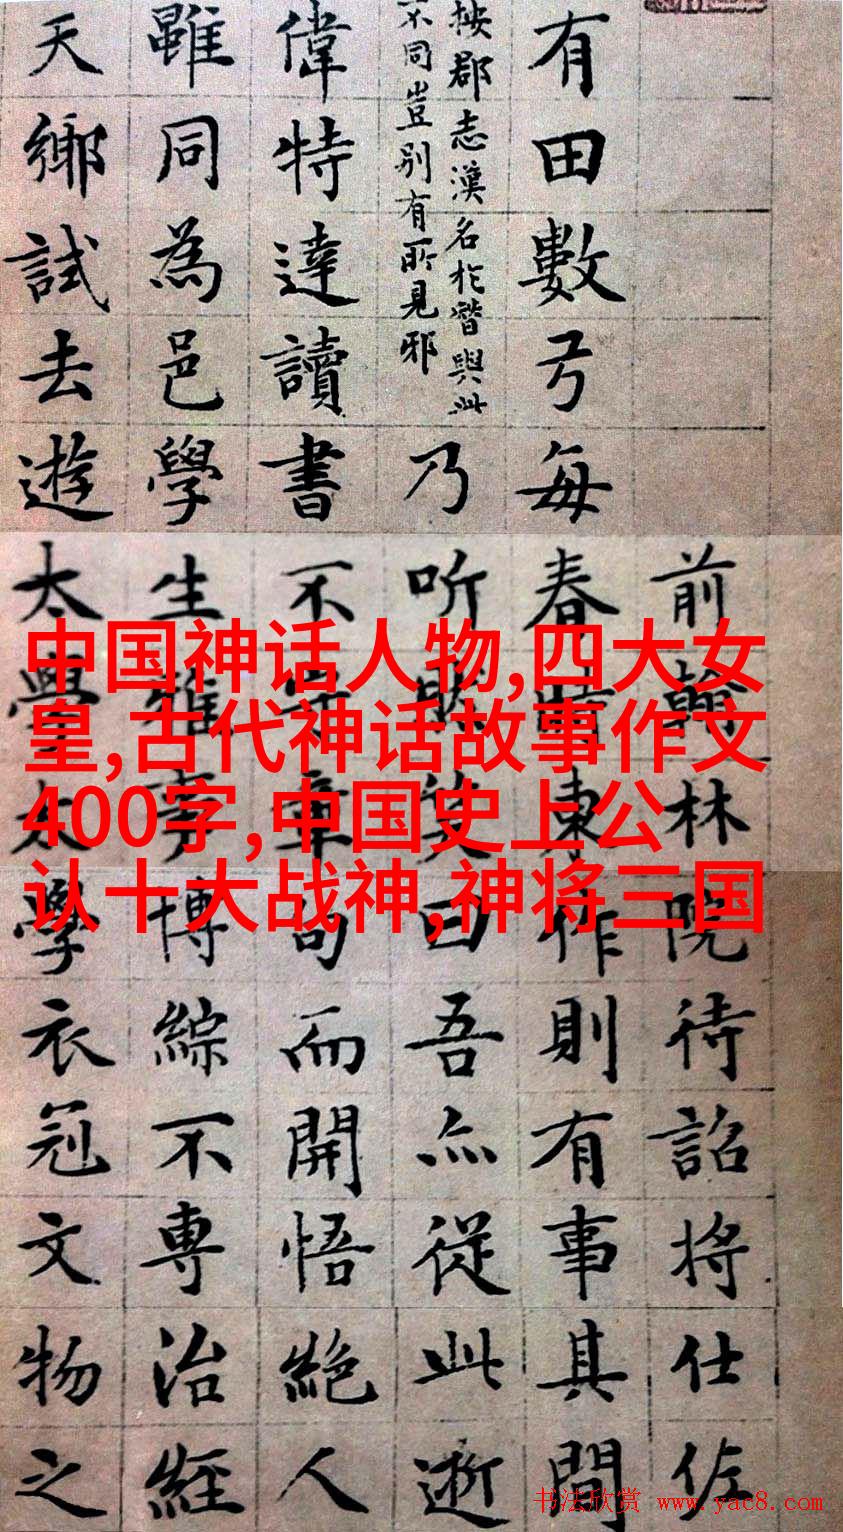 前翰林院待詔将仕佐
有田數弓每春時東作則有事其間
按郡志漢名於朁與此
不同豈别有所見邪
乃听然笑曰吾亦從此逝
偉特達讀書不守章句而開悟絕人
雖同為邑學生雅事博綜不專治經
天鄉試去遊太學太學衣冠文物之
中国神话人物,四大女
皇,古代神话故事作文
400字,中国史上公
认十大战神,神将三国
书法欣赏 www.yac8.com